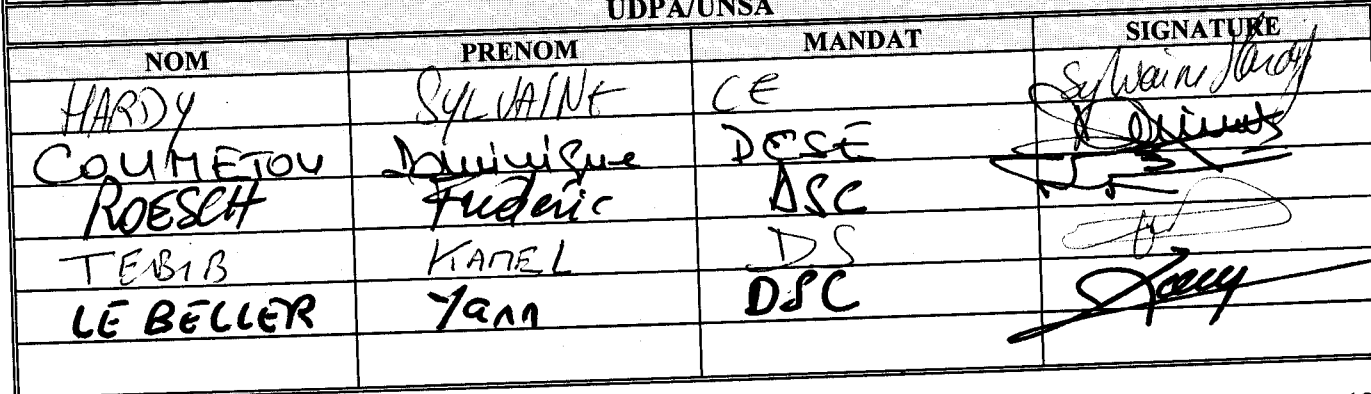 UDPA/UNSA
NOM PRENOM MANDAT SIGNATURE
HARDY SYLVAINE CE Sylvaine Hardy
COUMETOU Dominique DCSE
ROESCH Frédéric DSC
TEBIB KAMEL DS
LE BELLER Yann DSC